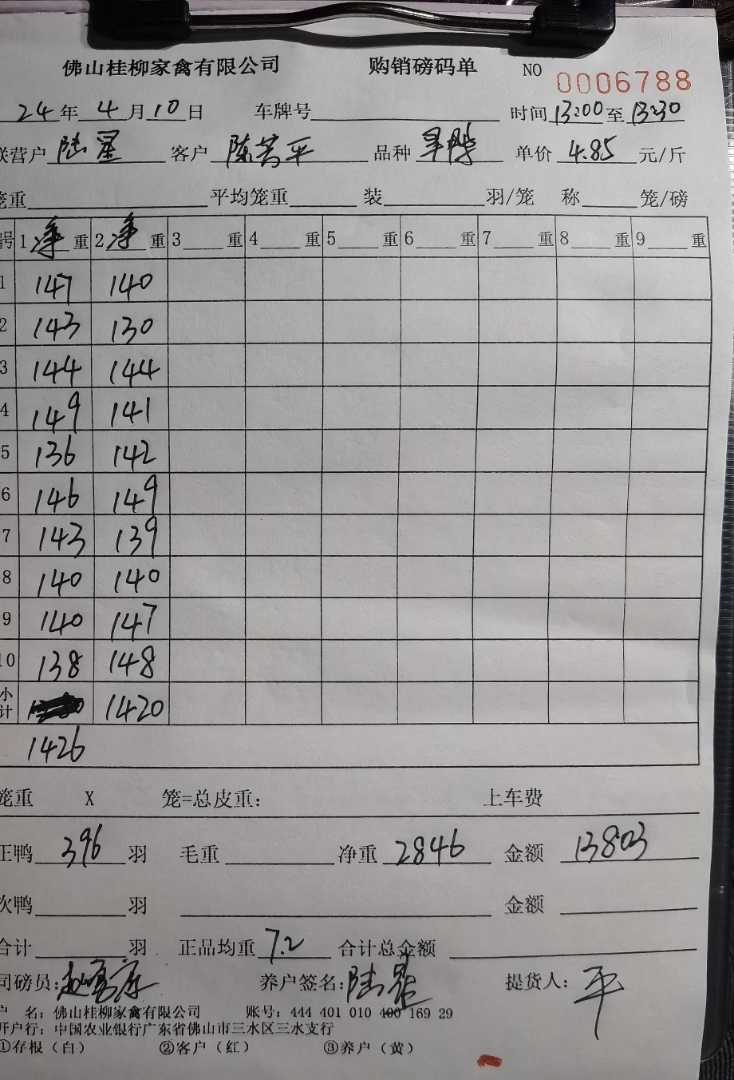 佛山桂柳家禽有限公司 购销磅码单 NO 0006788
24年 4月10日 车牌号 时间13:00至13:30
联营户 陆星 客户 陈芳平 品种 单价 4.85 元/斤
笼重 平均笼重 装 羽/笼 称 笼/磅
号 1净重 2净重 3 重 4 重 5 重 6 重 7 重 8 重 9 重
1 147 140
2 143 130
3 144 144
4 149 141
5 136 142
6 146 149
7 143 139
8 140 140
9 140 147
10 138 148
小计 1420
1426
笼重 X 笼=总皮重: 上车费
正鸭 396 羽 毛重 净重 2846 金额 13803
次鸭 羽 金额
合计 羽 正品均重 7.2 合计总金额
司磅员: 养户签名: 陆星 提货人: 平
户 名: 佛山桂柳家禽有限公司 账号: 444 401 010 400 169 29
开户行: 中国农业银行广东省佛山市三水区三水支行
①存根(白) ②客户(红) ③养户(黄)